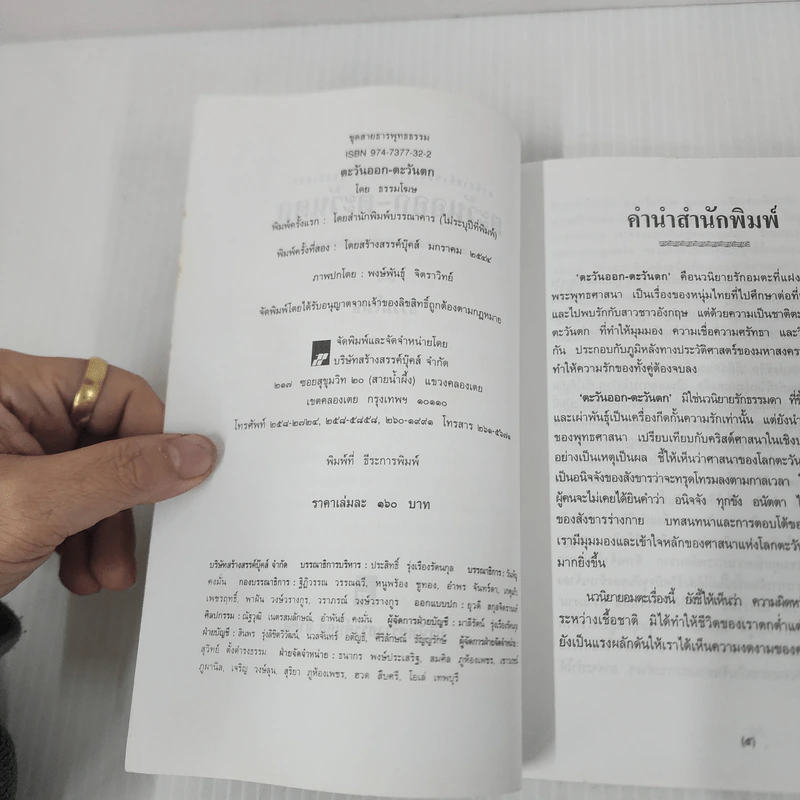 ชุดสายธารพุทธธรรม
ISBN 974-7377-32-2
ตะวันออก-ตะวันตก
โดย ธรรมโฆษ
พิมพ์ครั้งแรก : โดยสำนักพิมพ์บรรณาคาร (ไม่ระบุปีที่พิมพ์)
พิมพ์ครั้งที่สอง : โดยสร้างสรรค์บุ๊คส์ มกราคม ๒๕๔๔
ภาพปกโดย : พงษ์พันธุ์ จิตราวิทย์
จัดพิมพ์โดยได้รับอนุญาตจากเจ้าของลิขสิทธิ์ถูกต้องตามกฎหมาย
จัดพิมพ์และจัดจำหน่ายโดย
บริษัทสร้างสรรค์บุ๊คส์ จำกัด
๒๑๗ ซอยสุขุมวิท ๒๐ (สายน้ำผึ้ง) แขวงคลองเตย
เขตคลองเตย กรุงเทพฯ ๑๐๑๑๐
โทรศัพท์ ๒๕๘-๒๗๒๔, ๒๕๘-๕๘๕๘, ๒๖๐-๑๙๙๑ โทรสาร ๒๖๑-๕๖๗๑
พิมพ์ที่ ธีระการพิมพ์
ราคาเล่มละ ๑๖๐ บาท
บริษัทสร้างสรรค์บุ๊คส์ จำกัด บรรณาธิการบริหาร : ประสิทธิ์ รุ่งเรืองรัตนกุล บรรณาธิการ :
คงมั่น กองบรรณาธิการ : ฐิฏิวรรณ วรรณฉวี, หนูพร้อง ชูทอง, อำพร จันทร์ดา,
เพชรฤทธิ์, พาฝัน วงษ์วรางกูร, วราภรณ์ วงษ์วรางกูร ออกแบบปก : ยุวดี
ศิลปกรรม : ณัฐวุฒิ เนตรสมลักษณ์, อำพันธ์ คงมั่น ผู้จัดการฝ่ายบัญชี : มาลีรัตน์
ฝ่ายบัญชี : สินพร รุ่งสิริตวิวัฒน์, นวลจันทร์ อตัญธิ, ศิริลักษณ์ ธัญญรักษ์ ผู้จัดการฝ่ายจำหน่าย :
สุวิทย์ ตั้งดำรงธรรม ฝ่ายจัดจำหน่าย : ธนากร พงษ์ประเสริฐ, สมศิล ภูห้องเพชร,
ภูผานิล, เจริญ วงษ์ลุน, สุริยา ภูห้องเพชร, ฮวด สืบศรี, โอเล่ เทพบุรี
คำนำสำนักพิมพ์
'ตะวันออก-ตะวันตก' คือนวนิยายรักอมตะที่แฝง
พระพุทธศาสนา เป็นเรื่องของหนุ่มไทยที่ไปศึกษาต่อที่
และไปพบรักกับสาวชาวอังกฤษ แต่ด้วยความเป็นชาติตะ
ตะวันตก ที่ทำให้มุมมอง ความเชื่อความศรัทธา และ
กัน ประกอบกับภูมิหลังทางประวัติศาสตร์ของมหาสงคร
ทำให้ความรักของทั้งคู่ต้องจบลง
'ตะวันออก-ตะวันตก' มิใช่นวนิยายรักธรรมดา ที่
และเผ่าพันธุ์เป็นเครื่องกีดกั้นความรักเท่านั้น แต่ยังนำ
ของพุทธศาสนา เปรียบเทียบกับคริสต์ศาสนาในเชิง
อย่างเป็นเหตุเป็นผล ชี้ให้เห็นว่าศาสนาของโลกตะวัน
เป็นอนิจจังของสังขารว่าจะทรุดโทรมลงตามกาลเวลา
ผู้คนจะไม่เคยได้ยินคำว่า อนิจจัง ทุกขัง อนัตตา
ของสังขารร่างกาย บทสนทนาและการตอบโต้ของ
เรามีมุมมองและเข้าใจหลักของศาสนาแห่งโลกตะวัน
มากยิ่งขึ้น
นวนิยายอมตะเรื่องนี้ ยังชี้ให้เห็นว่า ความผิดห
ระหว่างเชื้อชาติ มิได้ทำให้ชีวิตของเราตกต่ำแต่
ยังเป็นแรงผลักดันให้เราได้เห็นความงดงามของค
(๕)